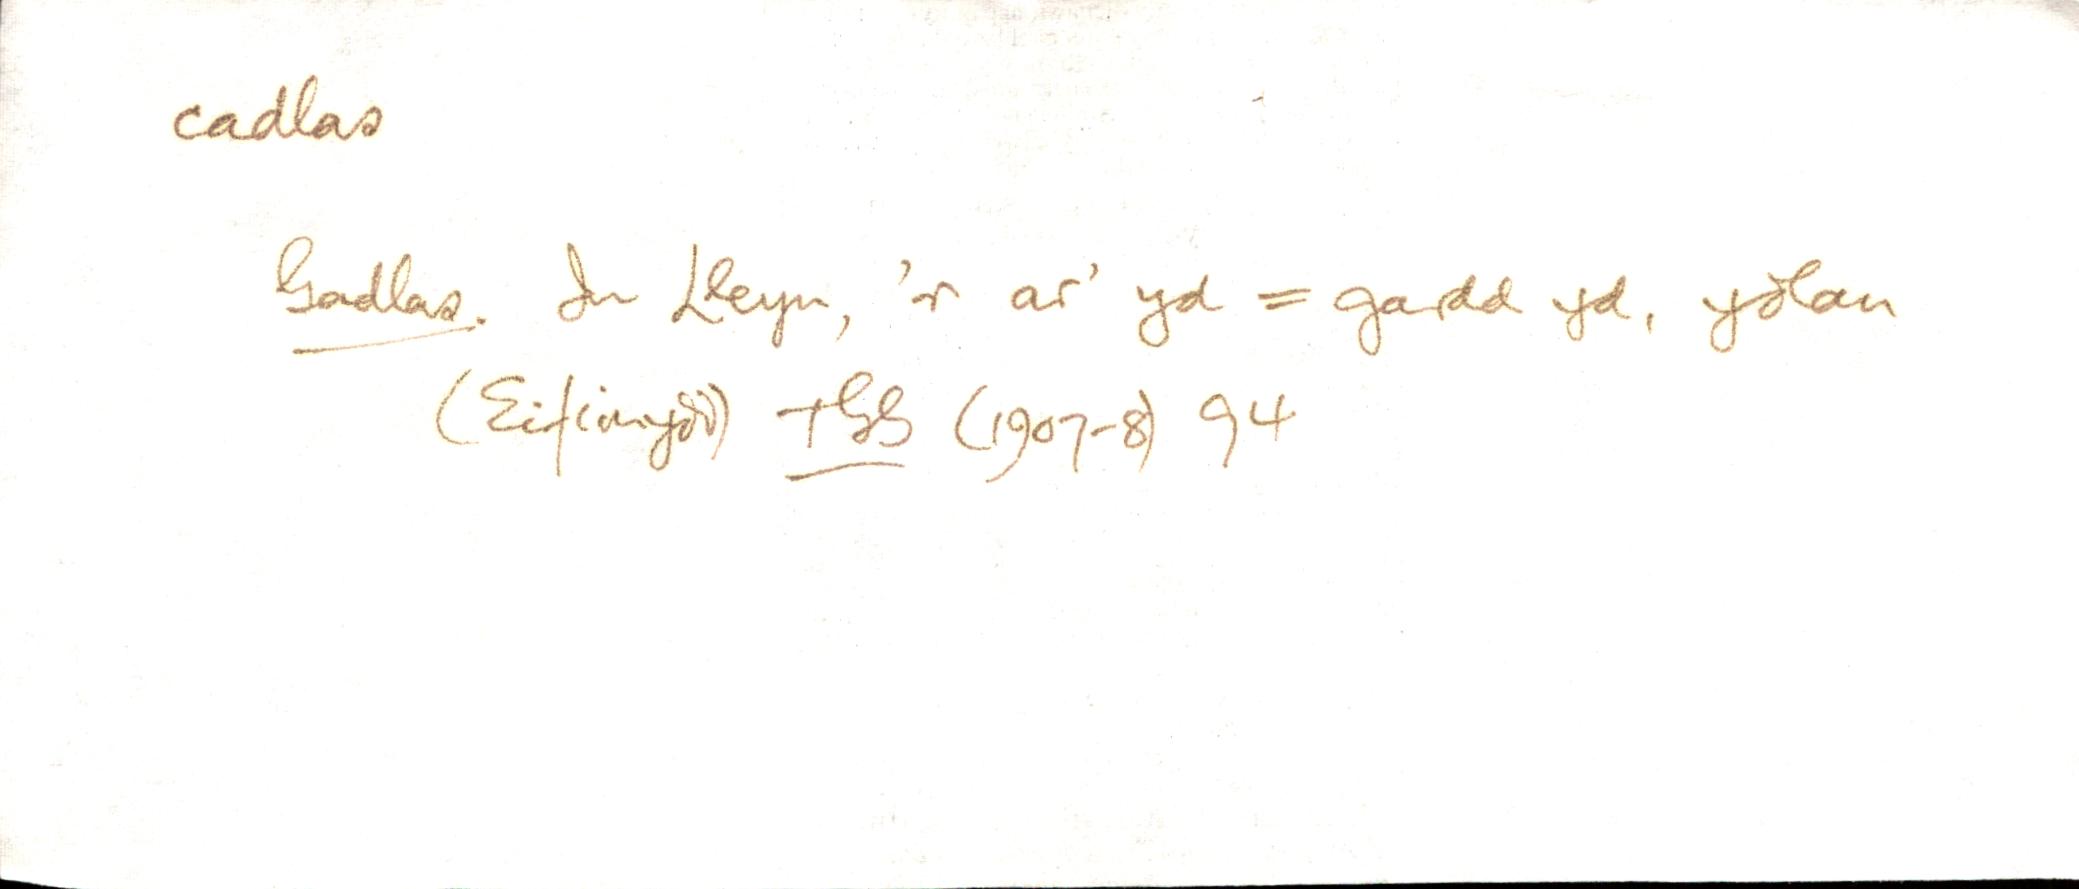 cadlas
Gadlas. In Lleyn, 'r ar' yd = gardd yd, yðlan
(Eifionyð) TGG (1907-8) 94